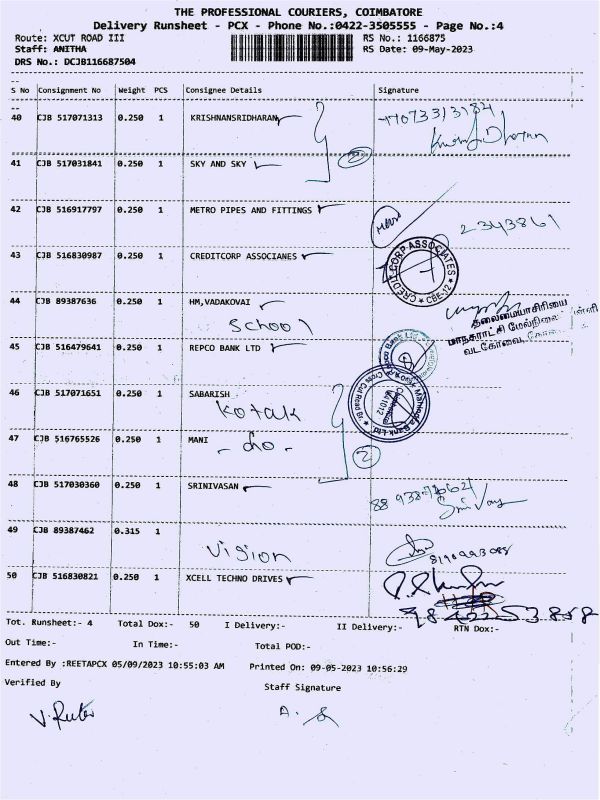 THE PROFESSIONAL COURIERS, COIMBATORE
Delivery Runsheet - PCX - Phone No.:0422-3505555 - Page No.:4
Route: XCUT ROAD III RS No.: 1166875
Staff: ANITHA RS Date: 09-May-2023
DRS No.: DCJB116687504
S No Consignment No Weight PCS Consignee Details Signature
40 CJB 517071313 0.250 1 KRISHNANSRIDHARAN
41 CJB 517031841 0.250 1 SKY AND SKY
2
42 CJB 516917797 0.250 1 METRO PIPES AND FITTINGS
2343861
43 CJB 516830987 0.250 1 CREDITCORP ASSOCIANES
CREDIT CORP ASSOCIATES
CBE-12
44 CJB 89387636 0.250 1 HM,VADAKOVAI
School
தலைமையாசிரியை
மாநகராட்சி மேல்நிலைப்பள்ளி
வடகோவை,
45 CJB 516479641 0.250 1 REPCO BANK LTD
46 CJB 517071651 0.250 1 SABARISH
Kotak
Kotak Mahindra Bank Ltd.
Cross Cut Road Br
641012
47 CJB 516765526 0.250 1 MANI
- do -
2
48 CJB 517030360 0.250 1 SRINIVASAN
49 CJB 89387462 0.315 1
Vision
8190993088
50 CJB 516830821 0.250 1 XCELL TECHNO DRIVES
Tot. Runsheet:- 4 Total Dox:- 50 I Delivery:- II Delivery:- RTN Dox:-
Out Time:- In Time:- Total POD:-
Entered By :REETAPCX 05/09/2023 10:55:03 AM Printed On: 09-05-2023 10:56:29
Verified By Staff Signature